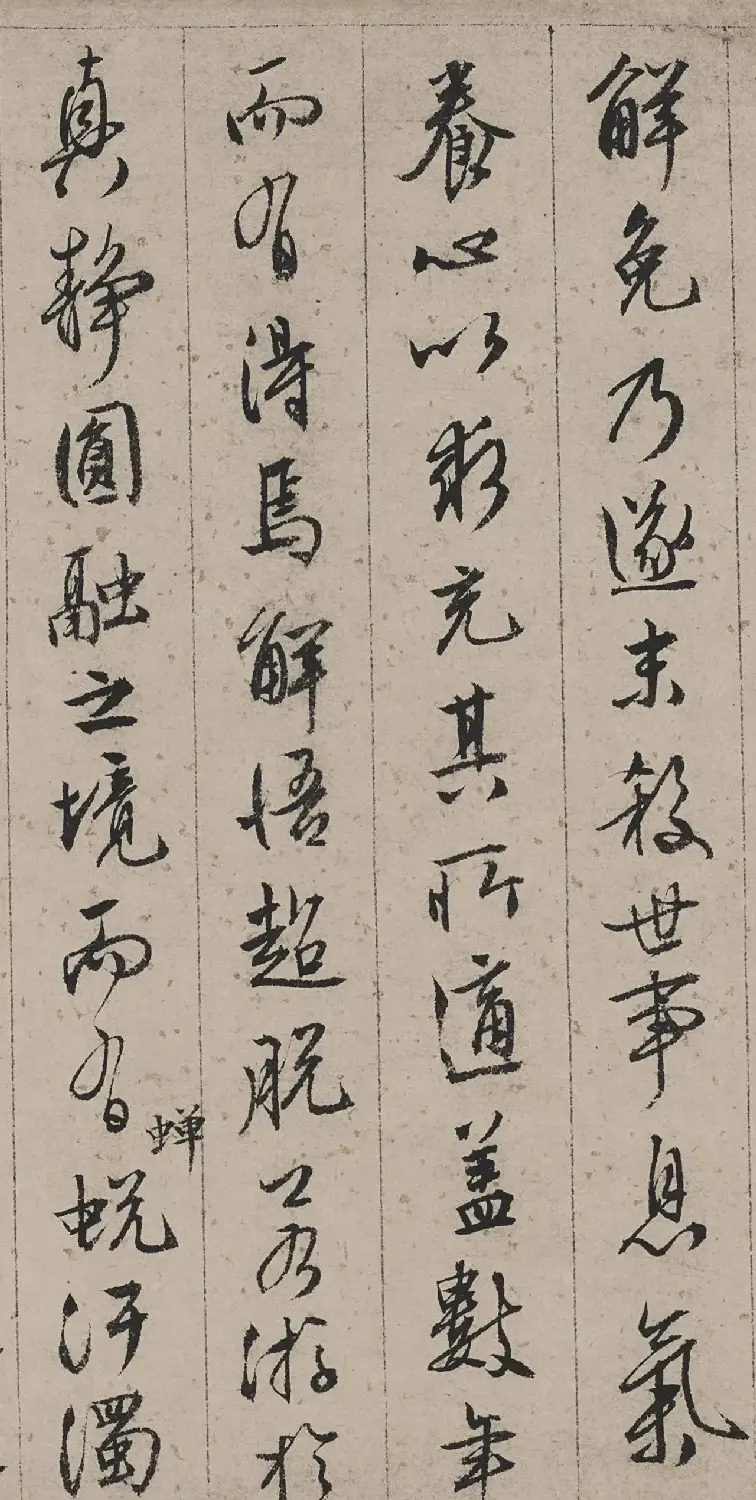 解免乃遂末殺世事息氣
養心以求充其所適蓋數年
而有得焉解悟超脫若游於
真靜圓融之境而有蟬蛻汙濁